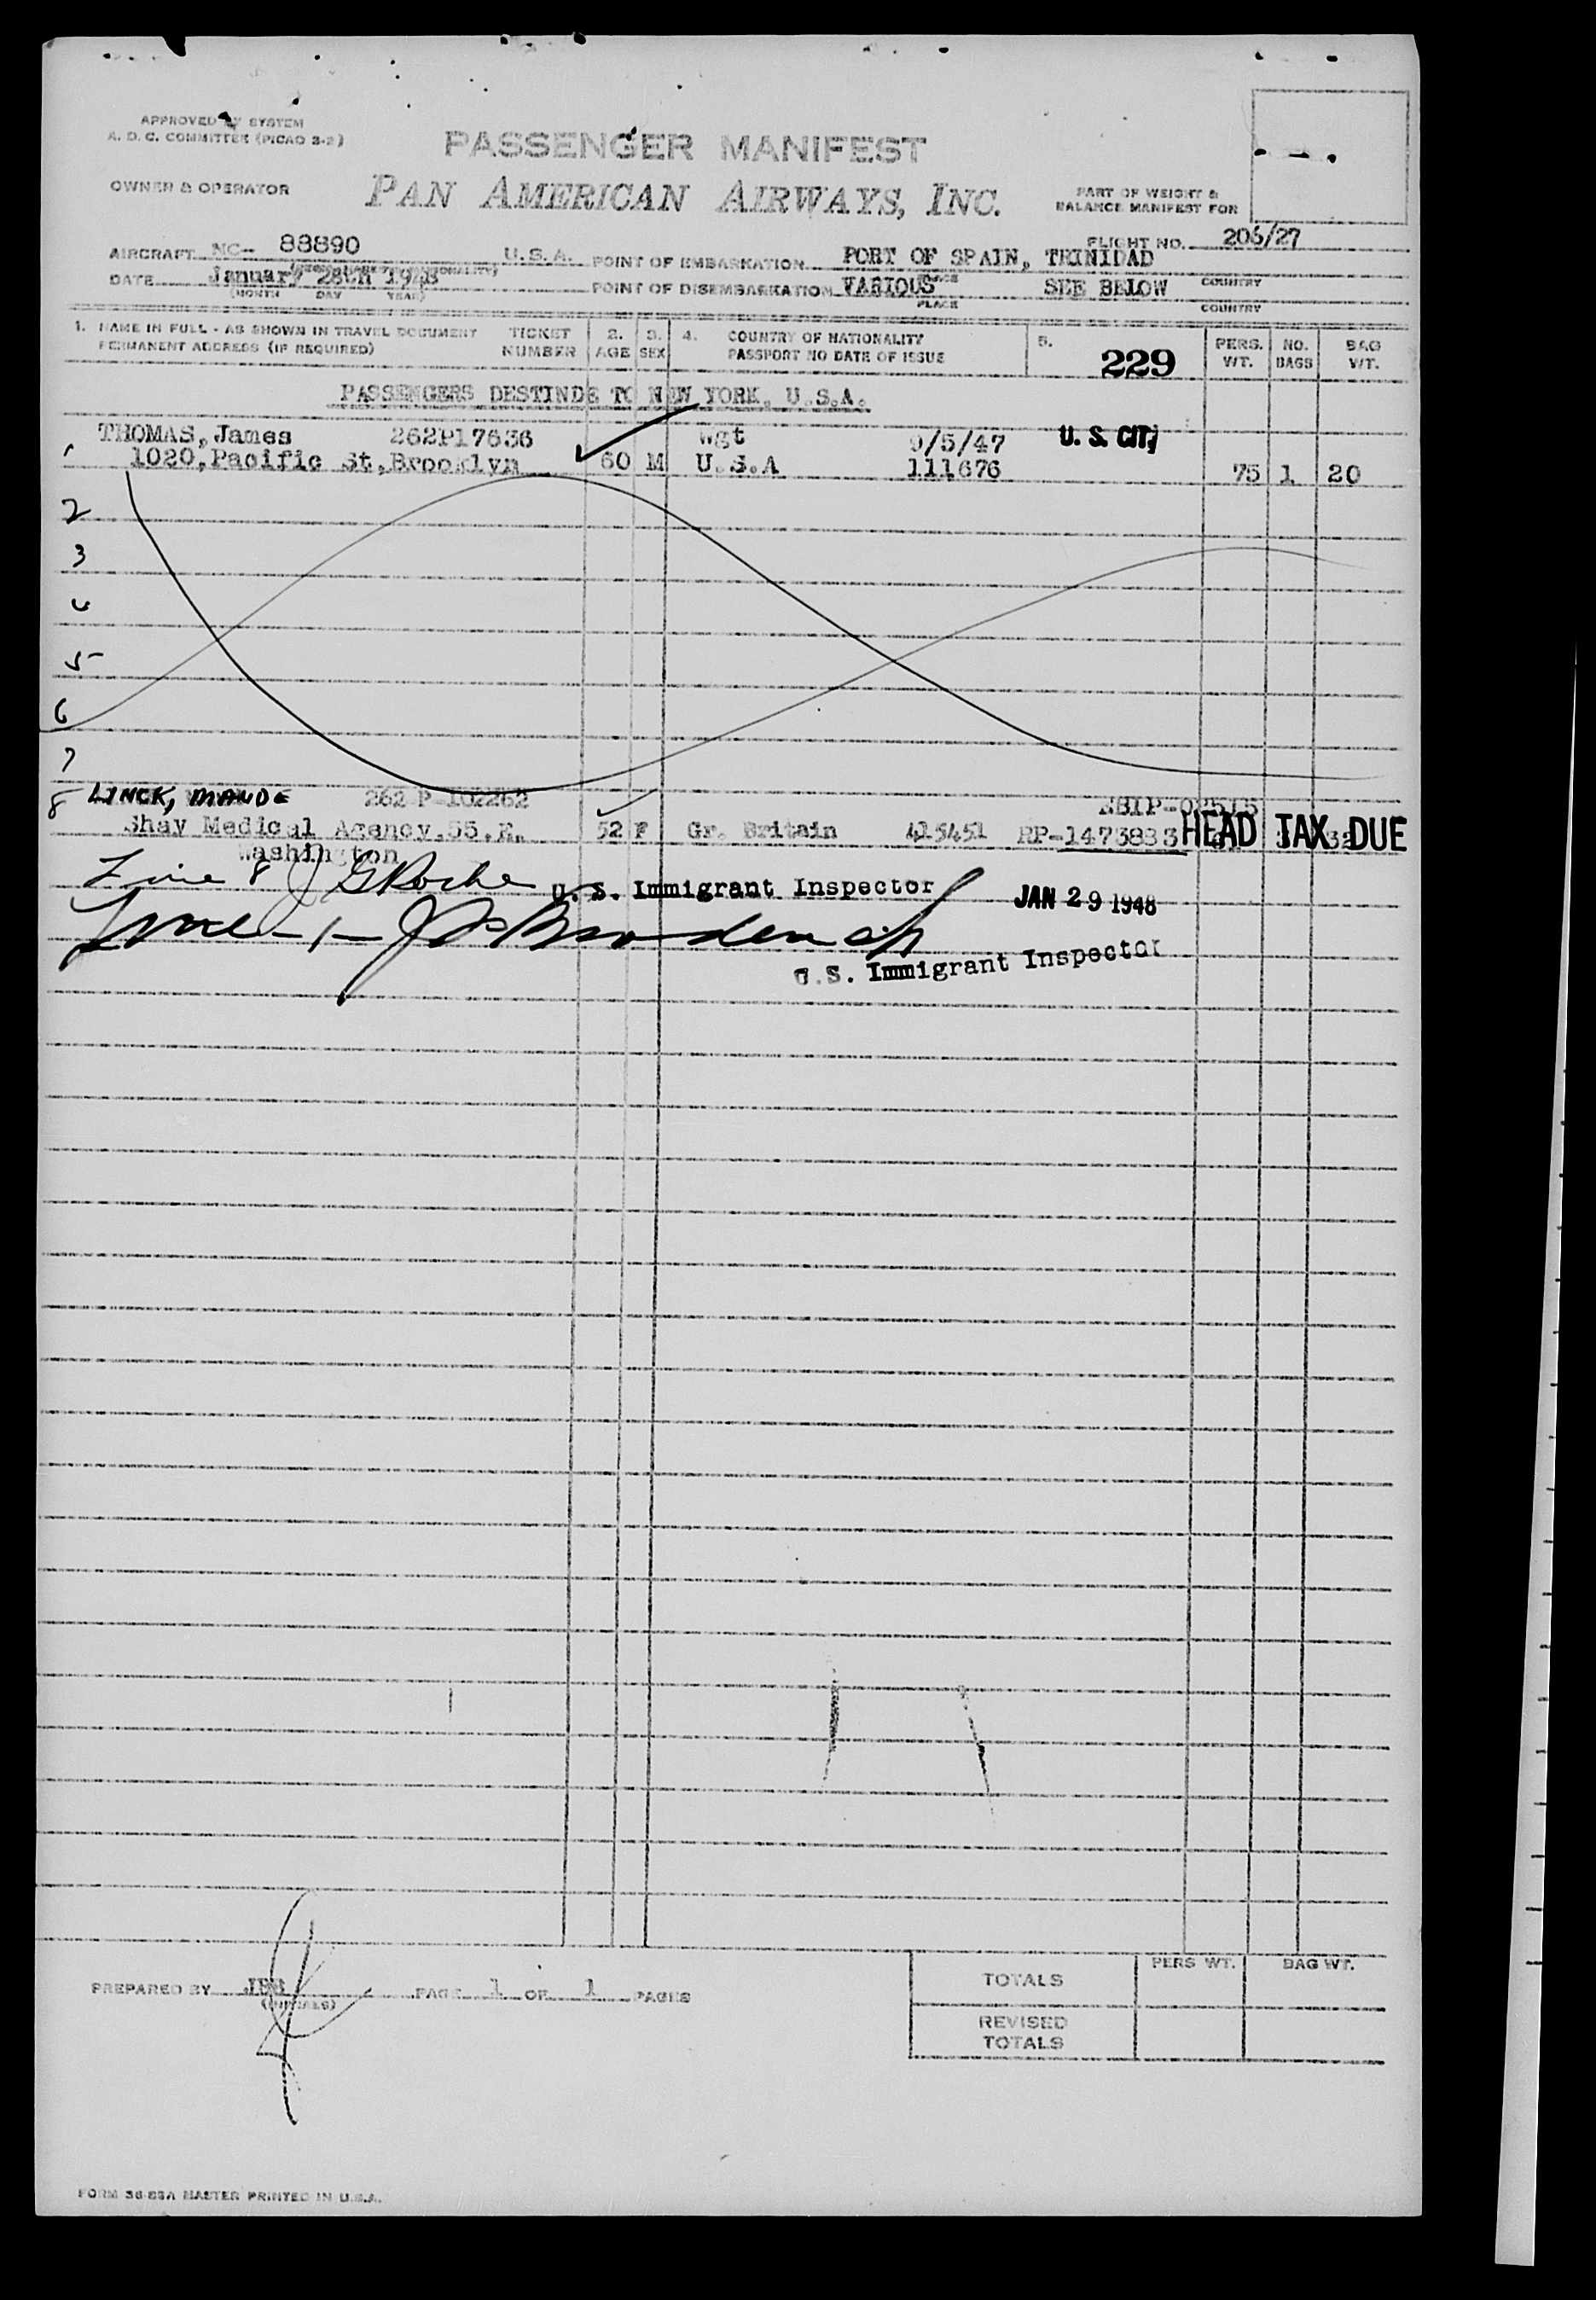 APPROVED BY SYSTEM
A. D. C. COMMITTEE (PICAO 3-2)
PASSENGER MANIFEST
OWNER & OPERATOR
PAN AMERICAN AIRWAYS, INC.
PART OF WEIGHT &
BALANCE MANIFEST FOR
FLIGHT NO. 206/27
AIRCRAFT NC- 88890 U.S.A. POINT OF EMBARKATION PORT OF SPAIN, TRINIDAD
PLACE COUNTRY
DATE January 28th 1948 POINT OF DISEMBARKATION VARIOUS SEE BELOW
(MONTH DAY YEAR) PLACE COUNTRY
1. NAME IN FULL - AS SHOWN IN TRAVEL DOCUMENT TICKET 2. 3. 4. COUNTRY OF NATIONALITY 5. PERS. NO. BAG
PERMANENT ADDRESS (IF REQUIRED) NUMBER AGE SEX PASSPORT NO DATE OF ISSUE 229 WT. BAGS WT.
PASSENGERS DESTINDE TO NEW YORK, U.S.A.
THOMAS, James 262P17636 Wgt 9/5/47 U. S. CIT
1 1020, Pacific St, Brooklyn 60 M U.S.A 111676 75 1 20
2
3
4
5
6
7
8 LINCK, MAUDE 262 P-102262
Shay Medical Agency, 55, E. 52 F Gr. Britain 415451 RP-1473883 HEAD TAX DUE
Washington
Line 8 J G Roche U. S. Immigrant Inspector JAN 29 1948
Line -1-
U.S. Immigrant Inspector
PREPARED BY PAGE 1 OF 1 PAGES
(INITIALS)
TOTALS PERS WT. BAG WT.
REVISED
TOTALS
FORM 36-83A MASTER PRINTED IN U.S.A.